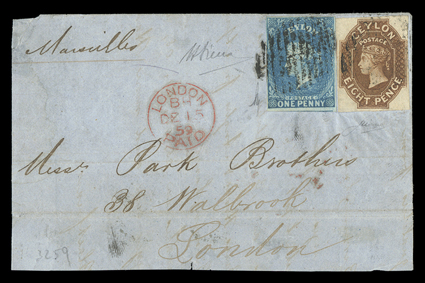 Marseilles
Athena
CEYLON
POSTAGE
ONE PENNY
CEYLON
POSTAGE
EIGHT PENCE
LONDON
BH
DE 15
59
PAID
Messrs. Park Brothers
38 Walbrook
London
3259